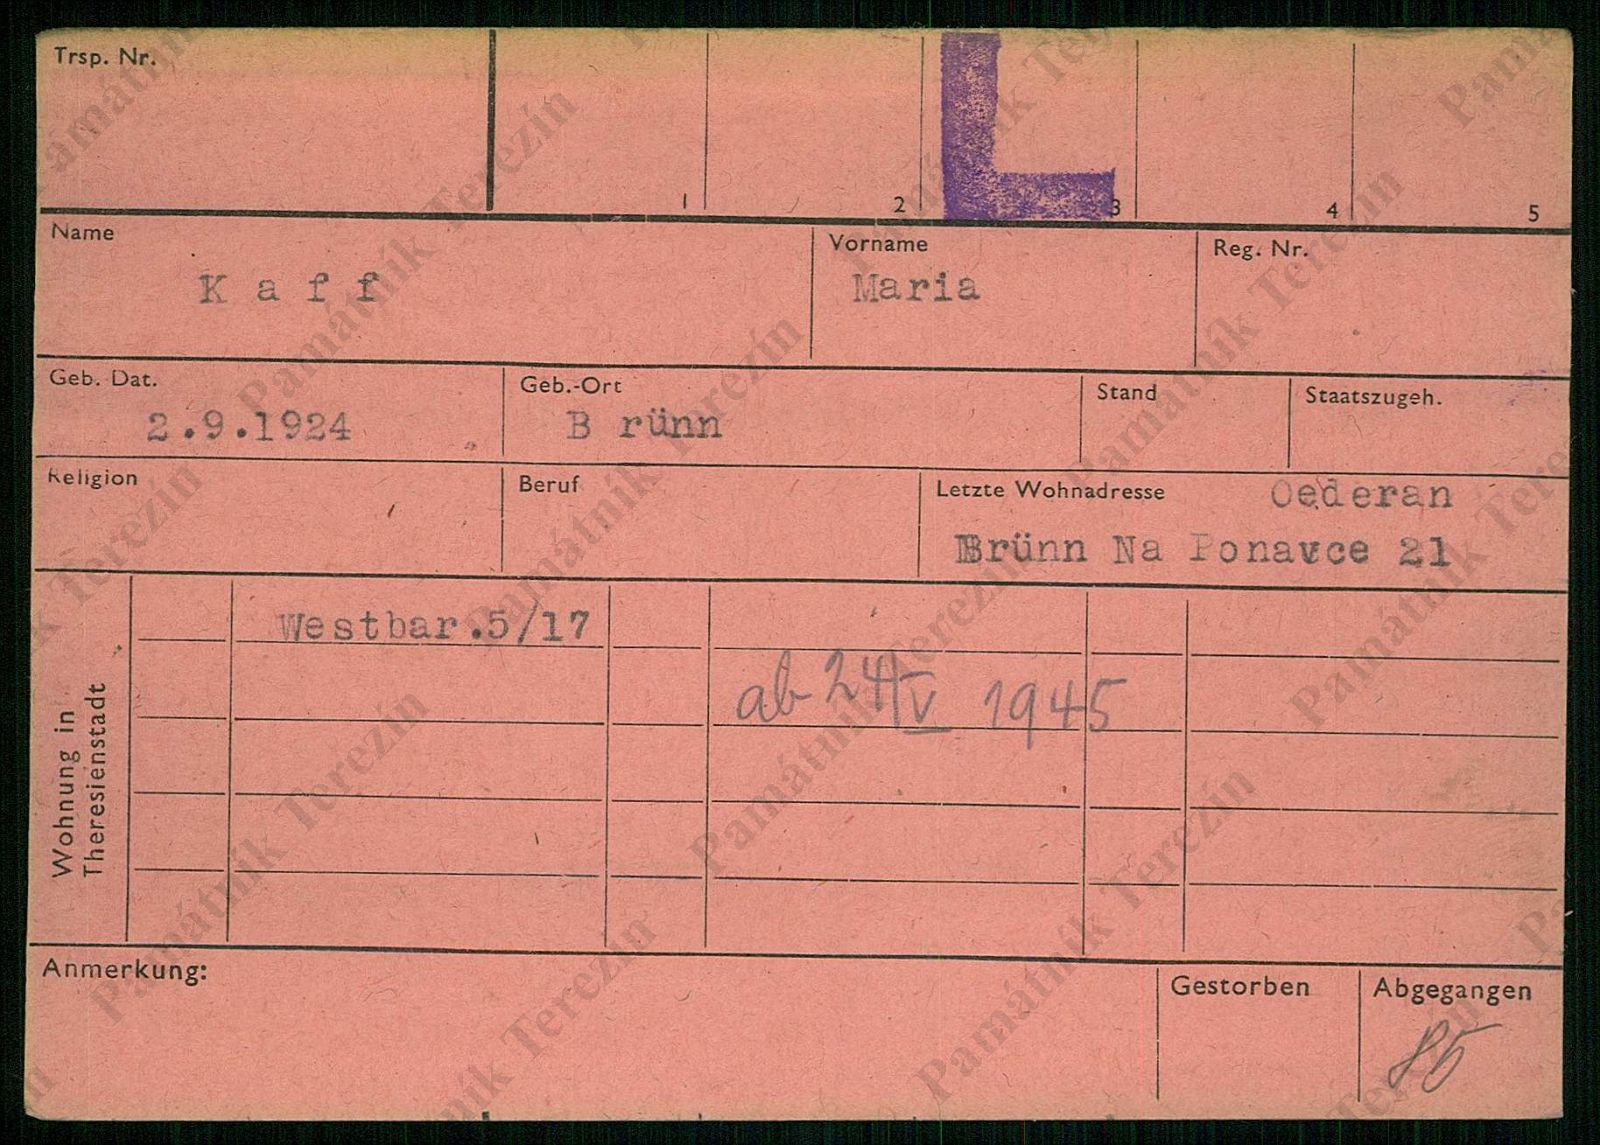 Trsp. Nr.
L
1 2 3 4 5
Name Vorname Reg. Nr.
K a f f Maria
Geb. Dat. Geb.-Ort Stand Staatszugeh.
2.9.1924 B rünn
Religion Beruf Letzte Wohnadresse Oederan
Brünn Na Ponavce 21
Wohnung in
Theresienstadt
Westbar.5/17
ab 24/V 1945
Anmerkung: Gestorben Abgegangen
85
Památník Terezín